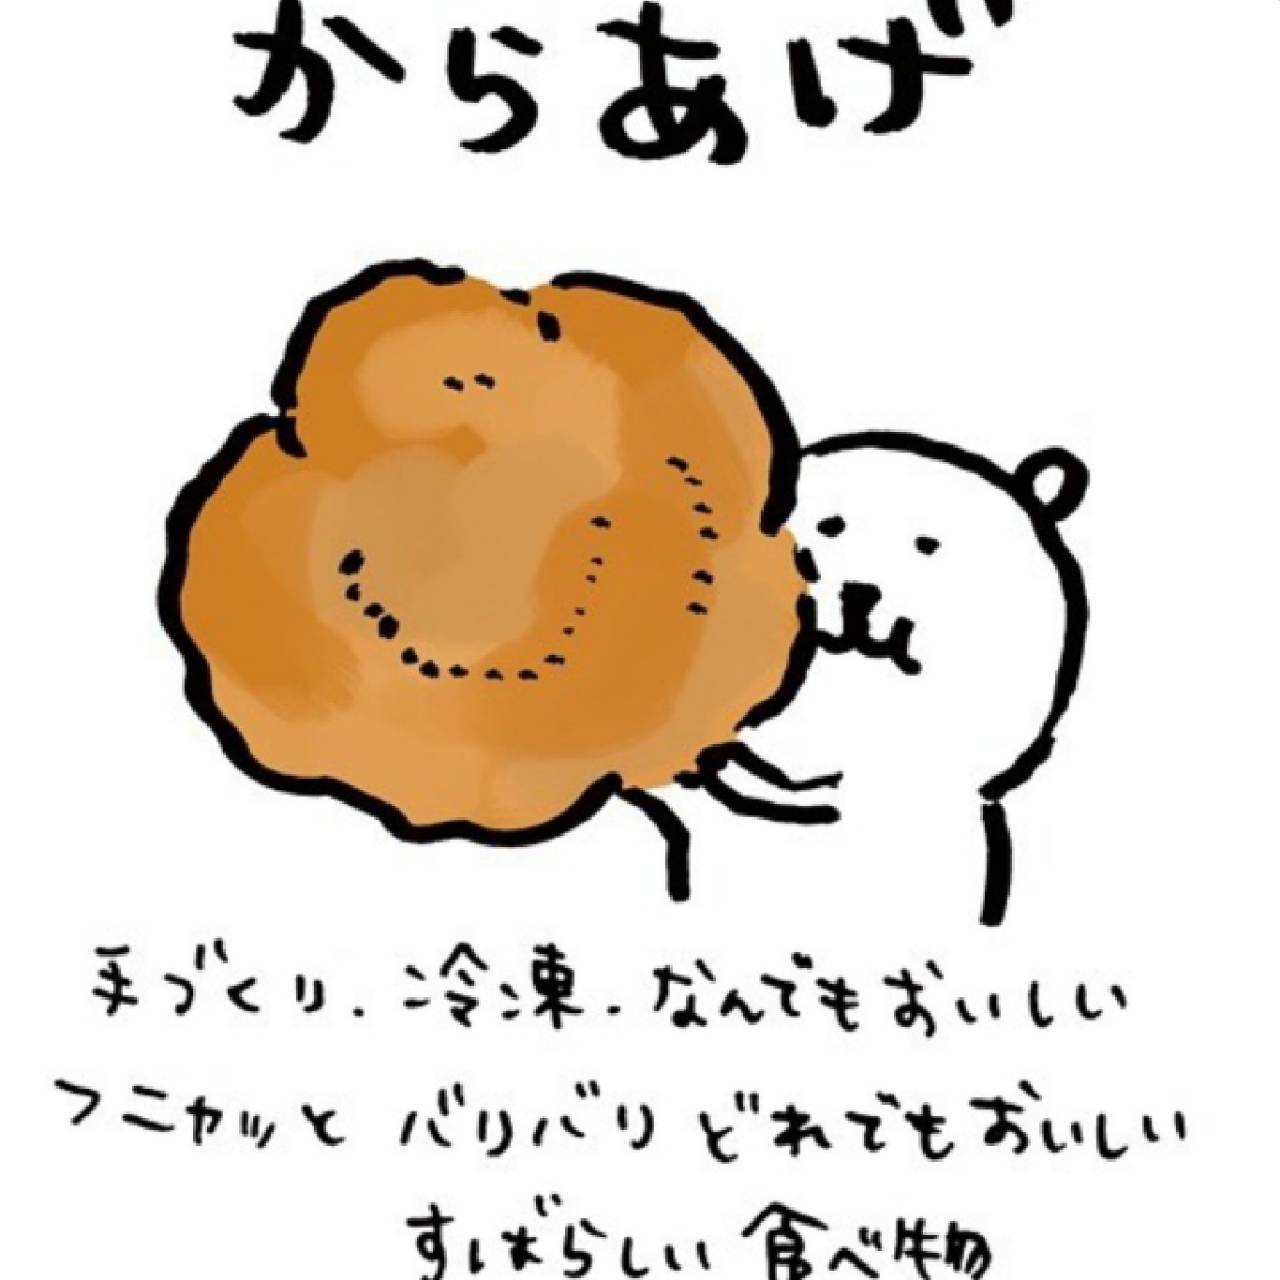 からあげ
手づくり.冷凍.なんでもおいしい
フニャッと バリバリ どれでもおいしい
すばらしい 食べ物